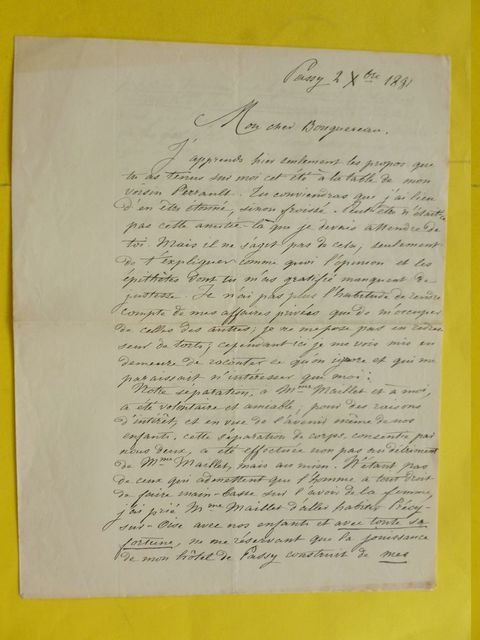 Passy 2 Xbre 1881
Mon cher Bouguereau.
J'apprends hier seulement les propos que
tu as tenus sur moi cet été à la table de mon
voisin Perrault. Tu conviendras que j'ai lieu
d'en être étonné, sinon froissé. Peut-être n'était-ce
pas cette amitié-là que je devais attendre de
toi. Mais il ne s'agit pas de cela, seulement
de t'expliquer comme quoi l'opinion et les
épithètes dont tu m'as gratifié manquent de
justesse. Je n'ai pas plus l'habitude de rendre
compte de mes affaires privées que de m'occuper
de celles des autres; je ne me pose pas en redres
seur de torts; cependant ici je me vois mis en
demeure de raconter ce qu'on ignore et qui me
paraissait n'intéresser que moi:
Notre séparation, à Mme Maillet et à moi,
a été volontaire et amiable, pour des raisons
d'intérêt, et en vue de l'avenir même de nos
enfants. cette séparation de corps, consentie par
nous deux, a été effectuée non pas au détriment
de Mme Maillet, mais au mien. N'étant pas
de ceux qui admettent que l'homme a tout droit
de faire main-basse sur l'avoir de la femme,
j'ai prié Mme Maillet d'aller habiter Précy-
sur-Oise avec nos enfants et avec toute sa
fortune, ne me réservant que la jouissance
de mon hôtel de Passy construit de mes